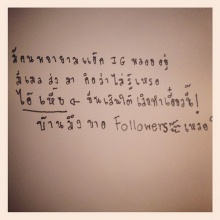 มีคนพยายามแฮ็ค IG หลอยอยู่
มีเมลส่งมา คิดว่าไม่รู้เหรอ
ไอ้เหี้ย ← ขึ้นเส้นใต้ เลิกทำเถื่อะ!
บ้านมึงขาด Followers เหรอ